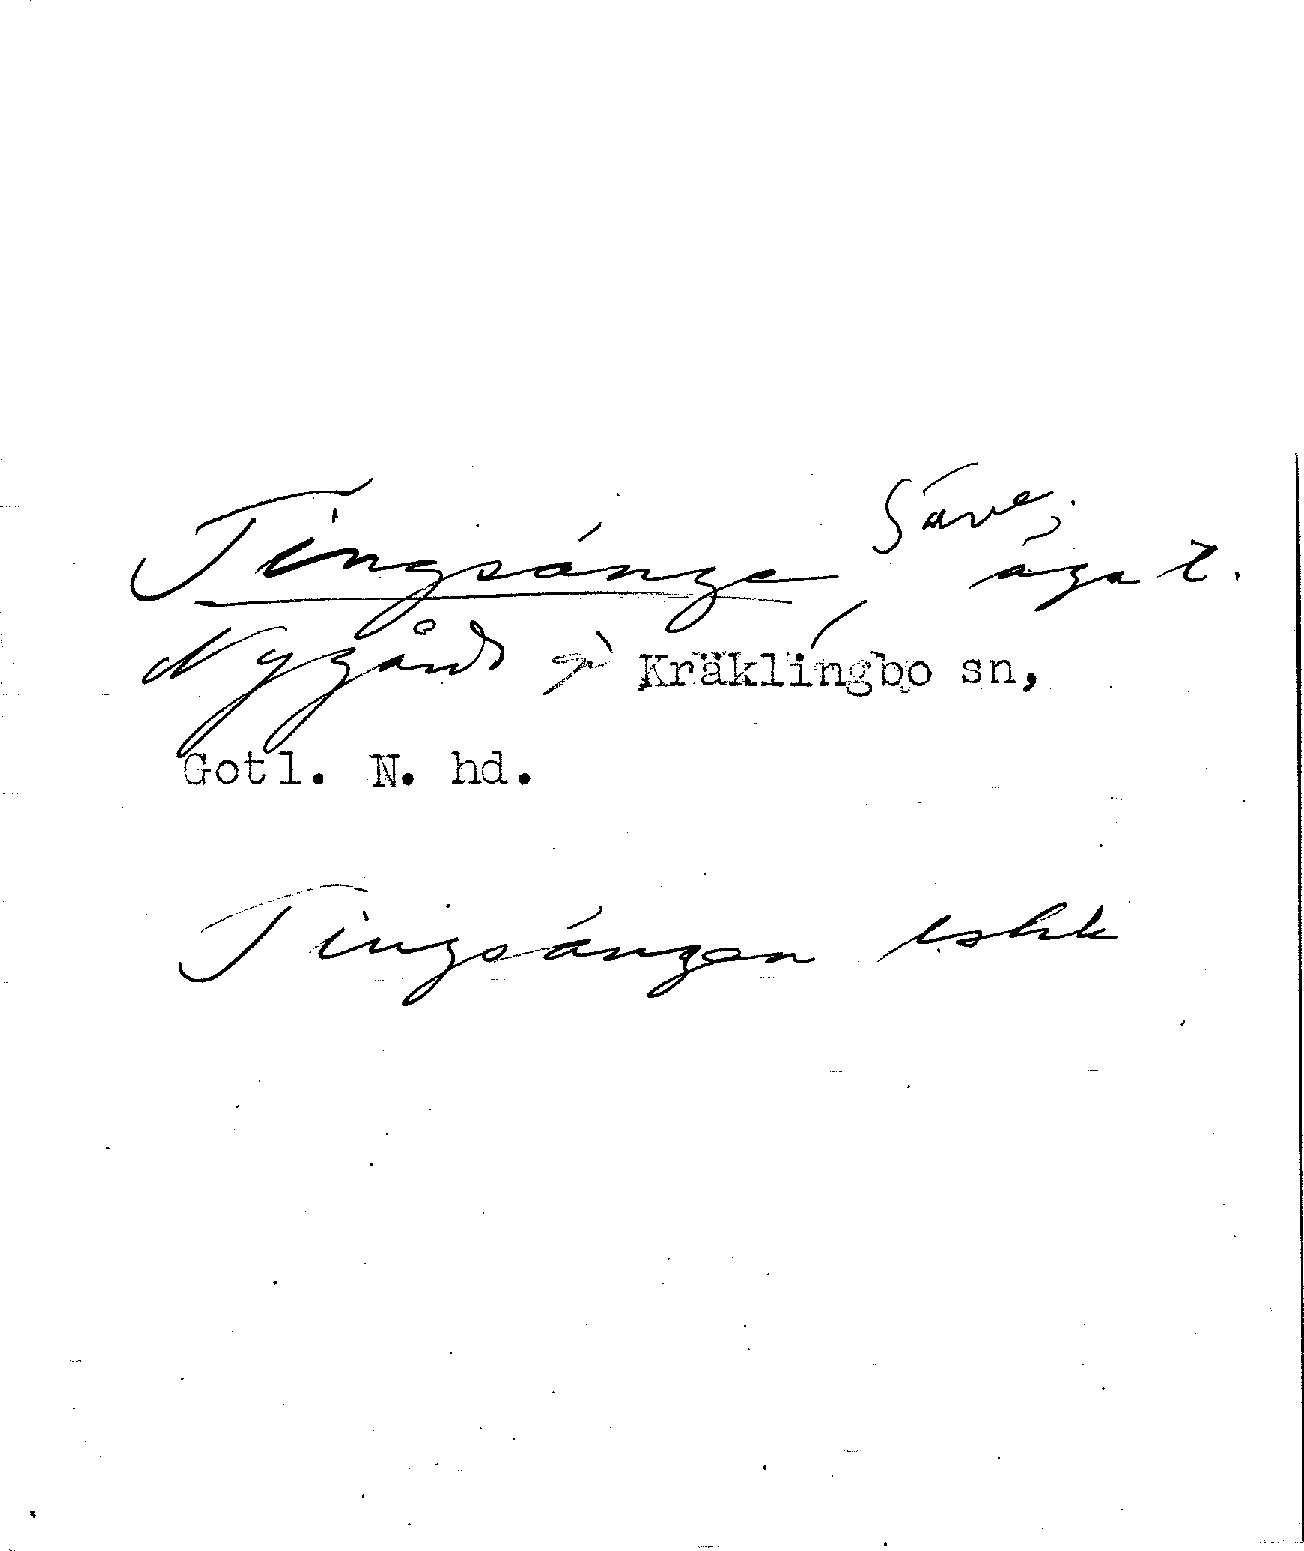 Tingsänge Säve;
ägat.
Nygårds Kräklingbo sn,
Gotl. N. hd.
Tingsängen